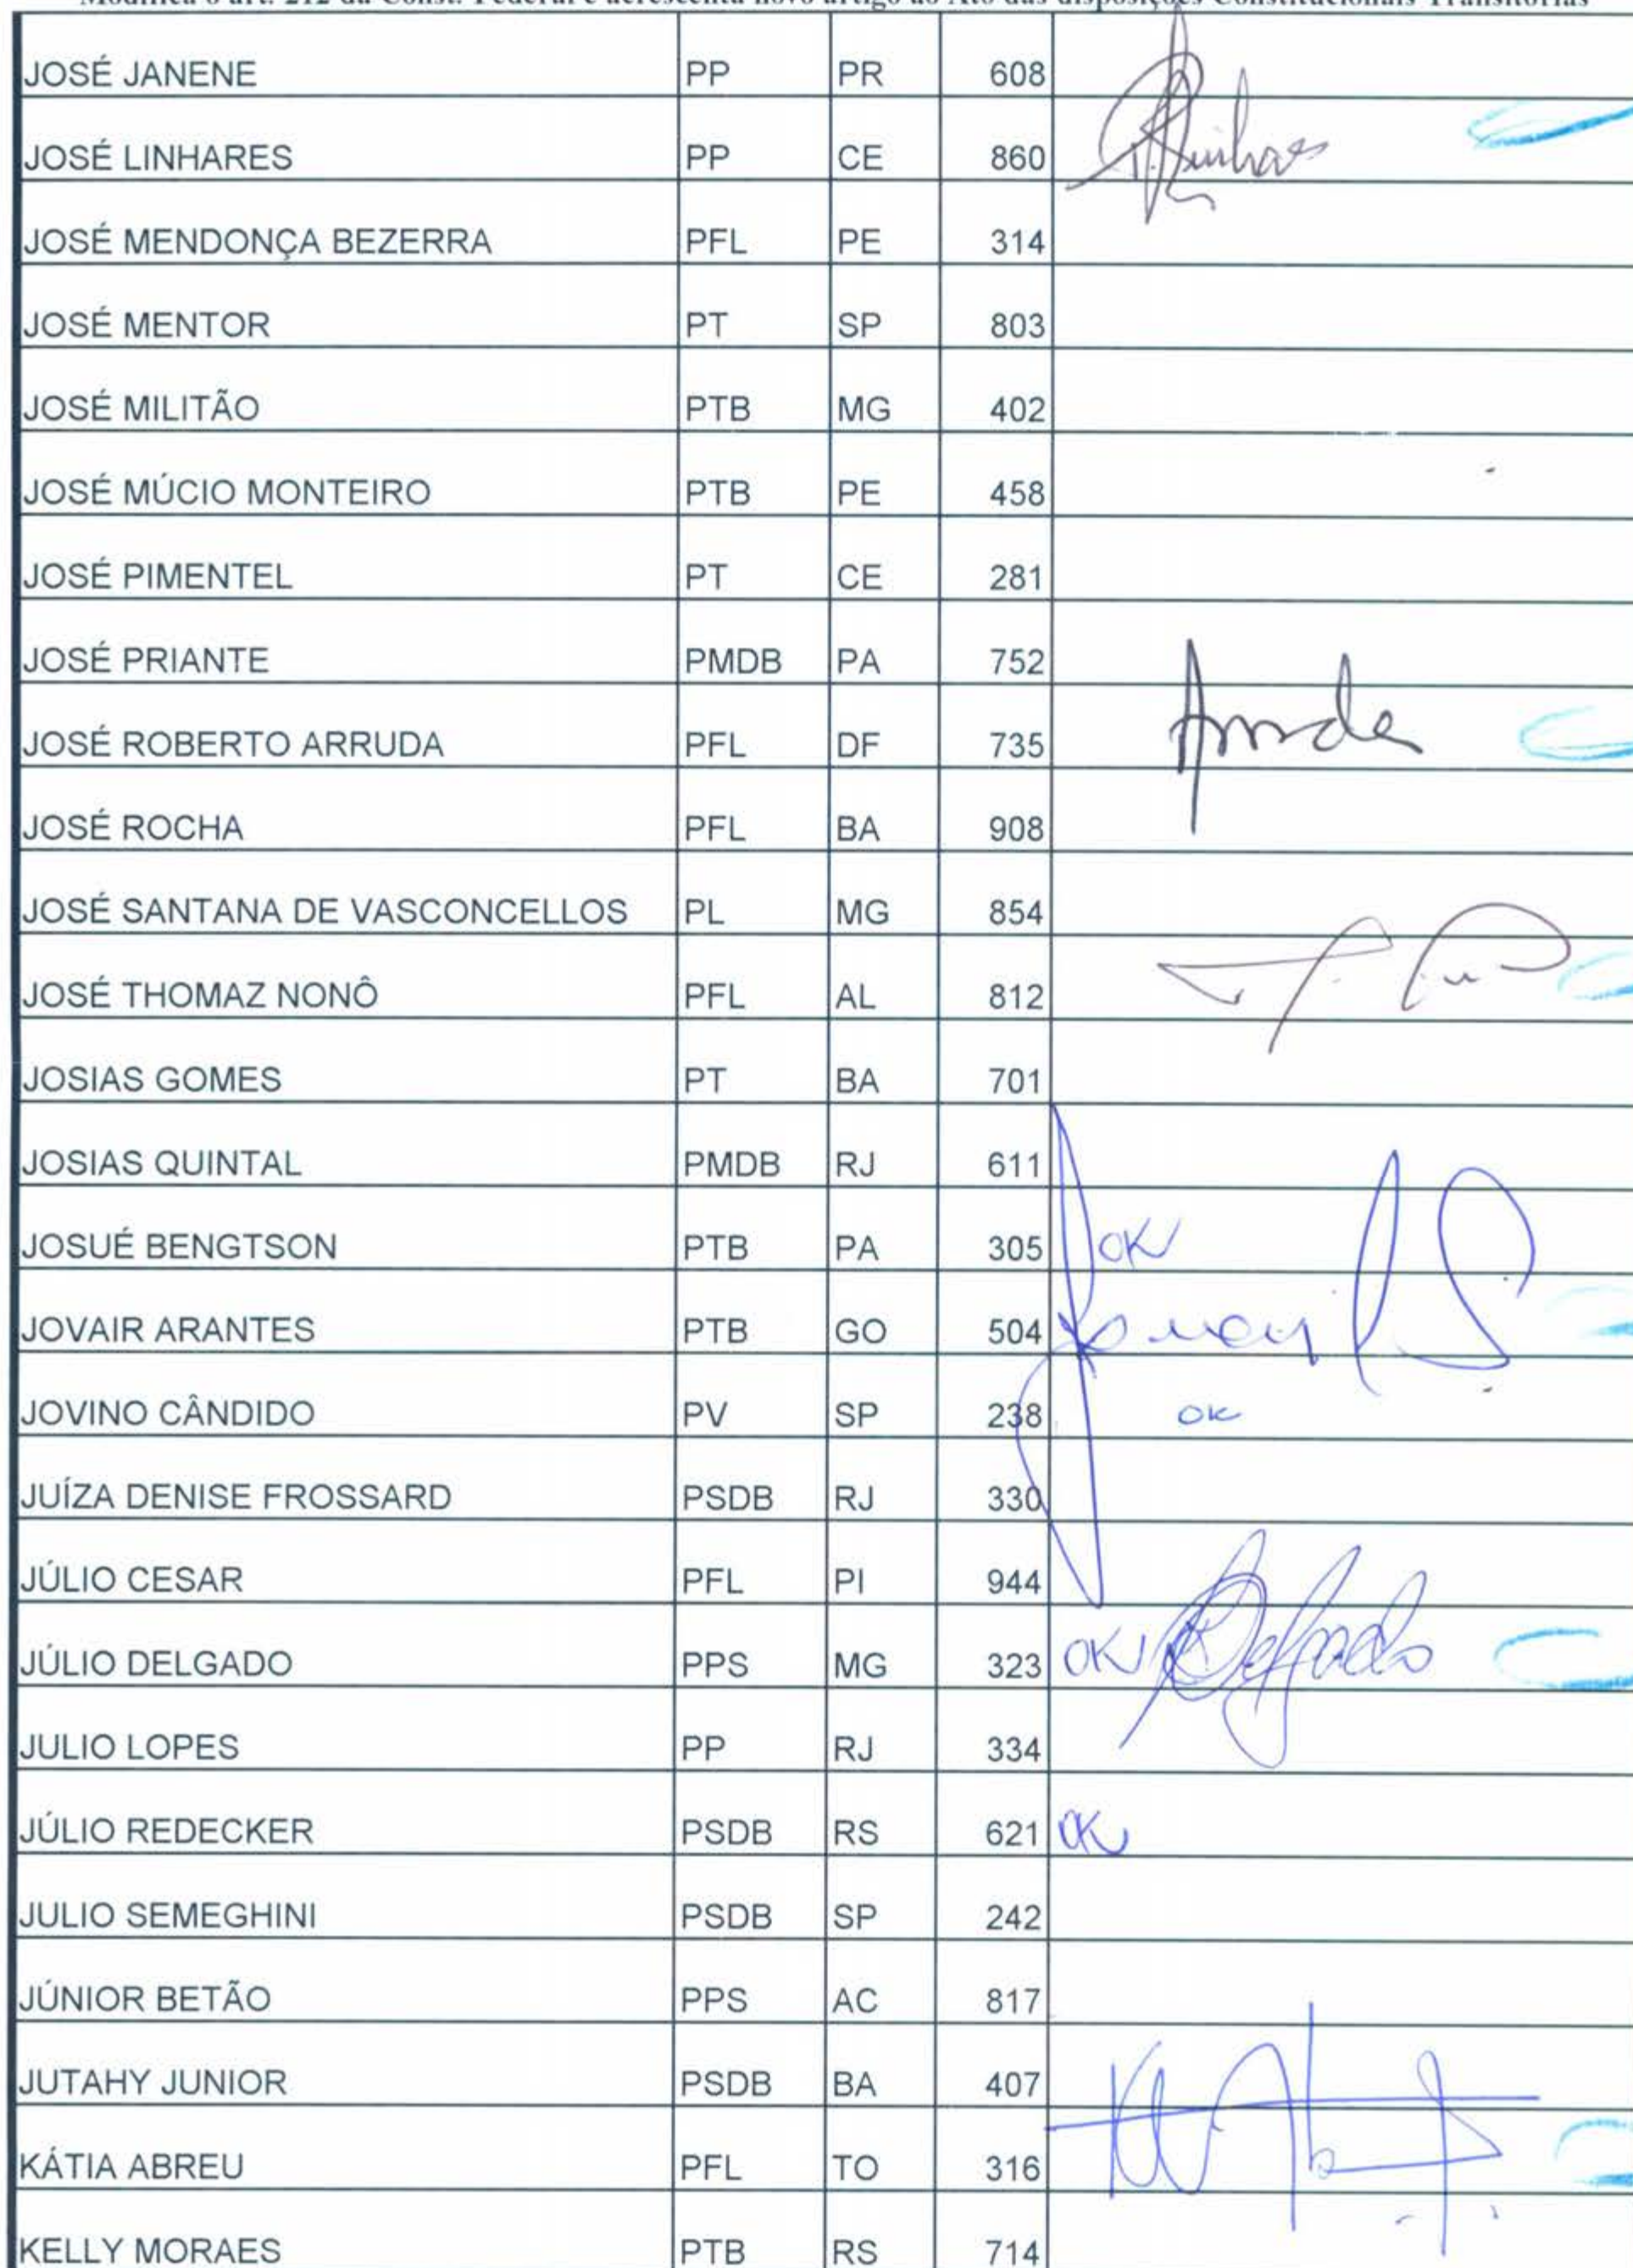 Modifica o art. 212 da Const. Federal e acrescenta novo artigo ao Ato das disposições Constitucionais Transitórias
JOSÉ JANENE PP PR 608
JOSÉ LINHARES PP CE 860
JOSÉ MENDONÇA BEZERRA PFL PE 314
JOSÉ MENTOR PT SP 803
JOSÉ MILITÃO PTB MG 402
JOSÉ MÚCIO MONTEIRO PTB PE 458
JOSÉ PIMENTEL PT CE 281
JOSÉ PRIANTE PMDB PA 752
JOSÉ ROBERTO ARRUDA PFL DF 735 Arruda
JOSÉ ROCHA PFL BA 908
JOSÉ SANTANA DE VASCONCELLOS PL MG 854
JOSÉ THOMAZ NONÔ PFL AL 812
JOSIAS GOMES PT BA 701
JOSIAS QUINTAL PMDB RJ 611
JOSUÉ BENGTSON PTB PA 305 OK
JOVAIR ARANTES PTB GO 504
JOVINO CÂNDIDO PV SP 238 OK
JUÍZA DENISE FROSSARD PSDB RJ 330
JÚLIO CESAR PFL PI 944
JÚLIO DELGADO PPS MG 323 OK Delgado
JULIO LOPES PP RJ 334
JÚLIO REDECKER PSDB RS 621 OK
JULIO SEMEGHINI PSDB SP 242
JÚNIOR BETÃO PPS AC 817
JUTAHY JUNIOR PSDB BA 407
KÁTIA ABREU PFL TO 316
KELLY MORAES PTB RS 714